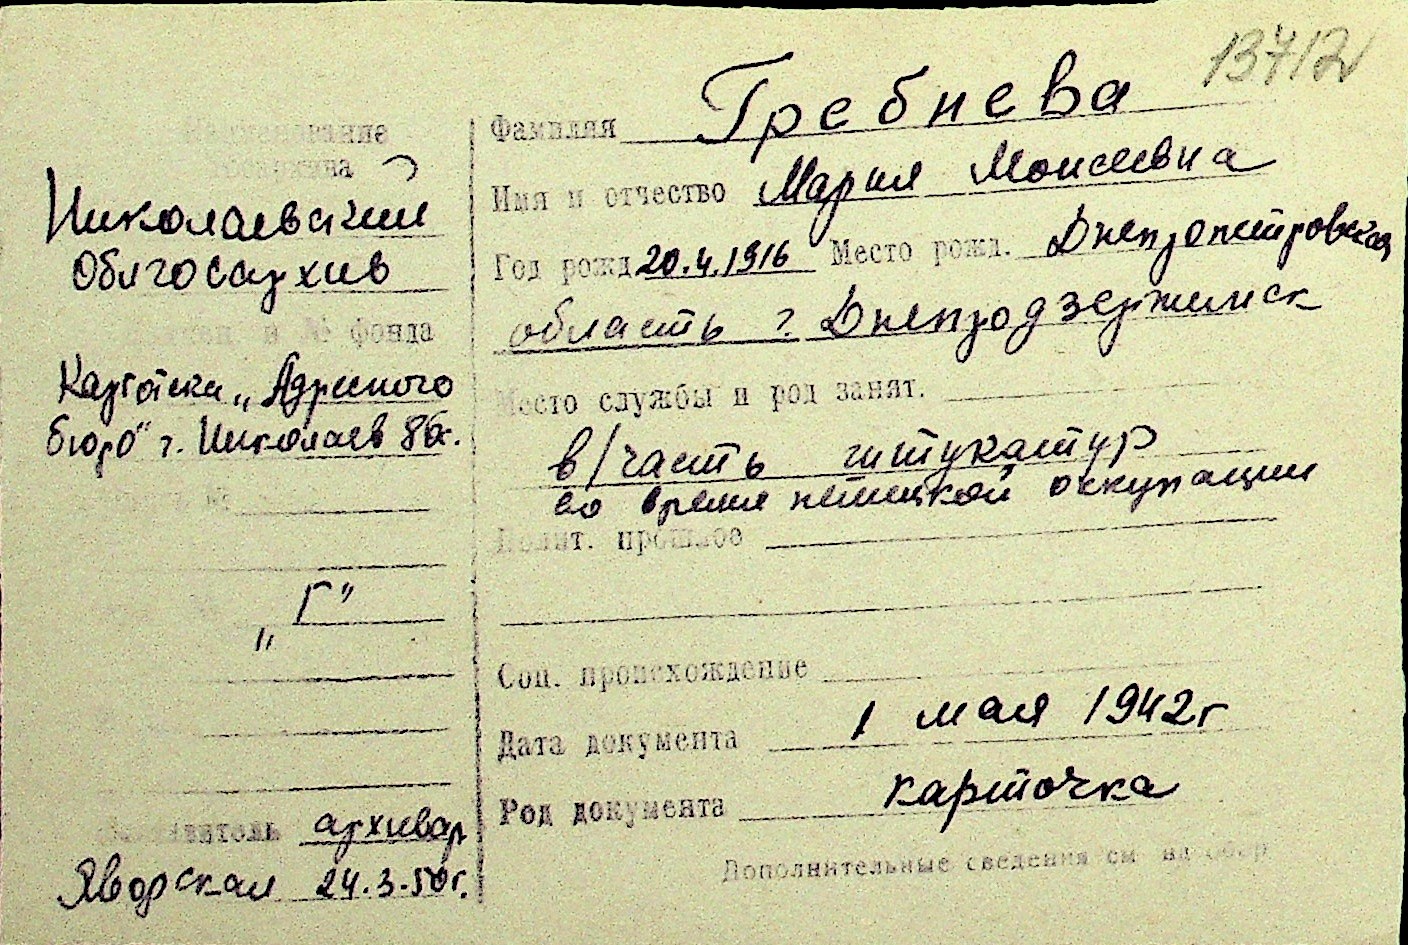 13712
Наименование
госархива
Николаевский
Облгосархив
и № фонда
Картотека „Адресного
бюро" г. Николаев
„Г"
архивар
Яворская 24.3.50г.
Фамилия Гребнева
Имя и отчество Мария Моисеевна
Год рожд 20.4.1916 Место рожд. Днепропетровская
область г. Днепродзержинск
Место службы и род занят.
в/часть штукатур
во время немецкой оккупации
Полит. прошлое
Соц. происхождение
Дата документа 1 мая 1942г
Род документа карточка
Дополнительные сведения см на обор